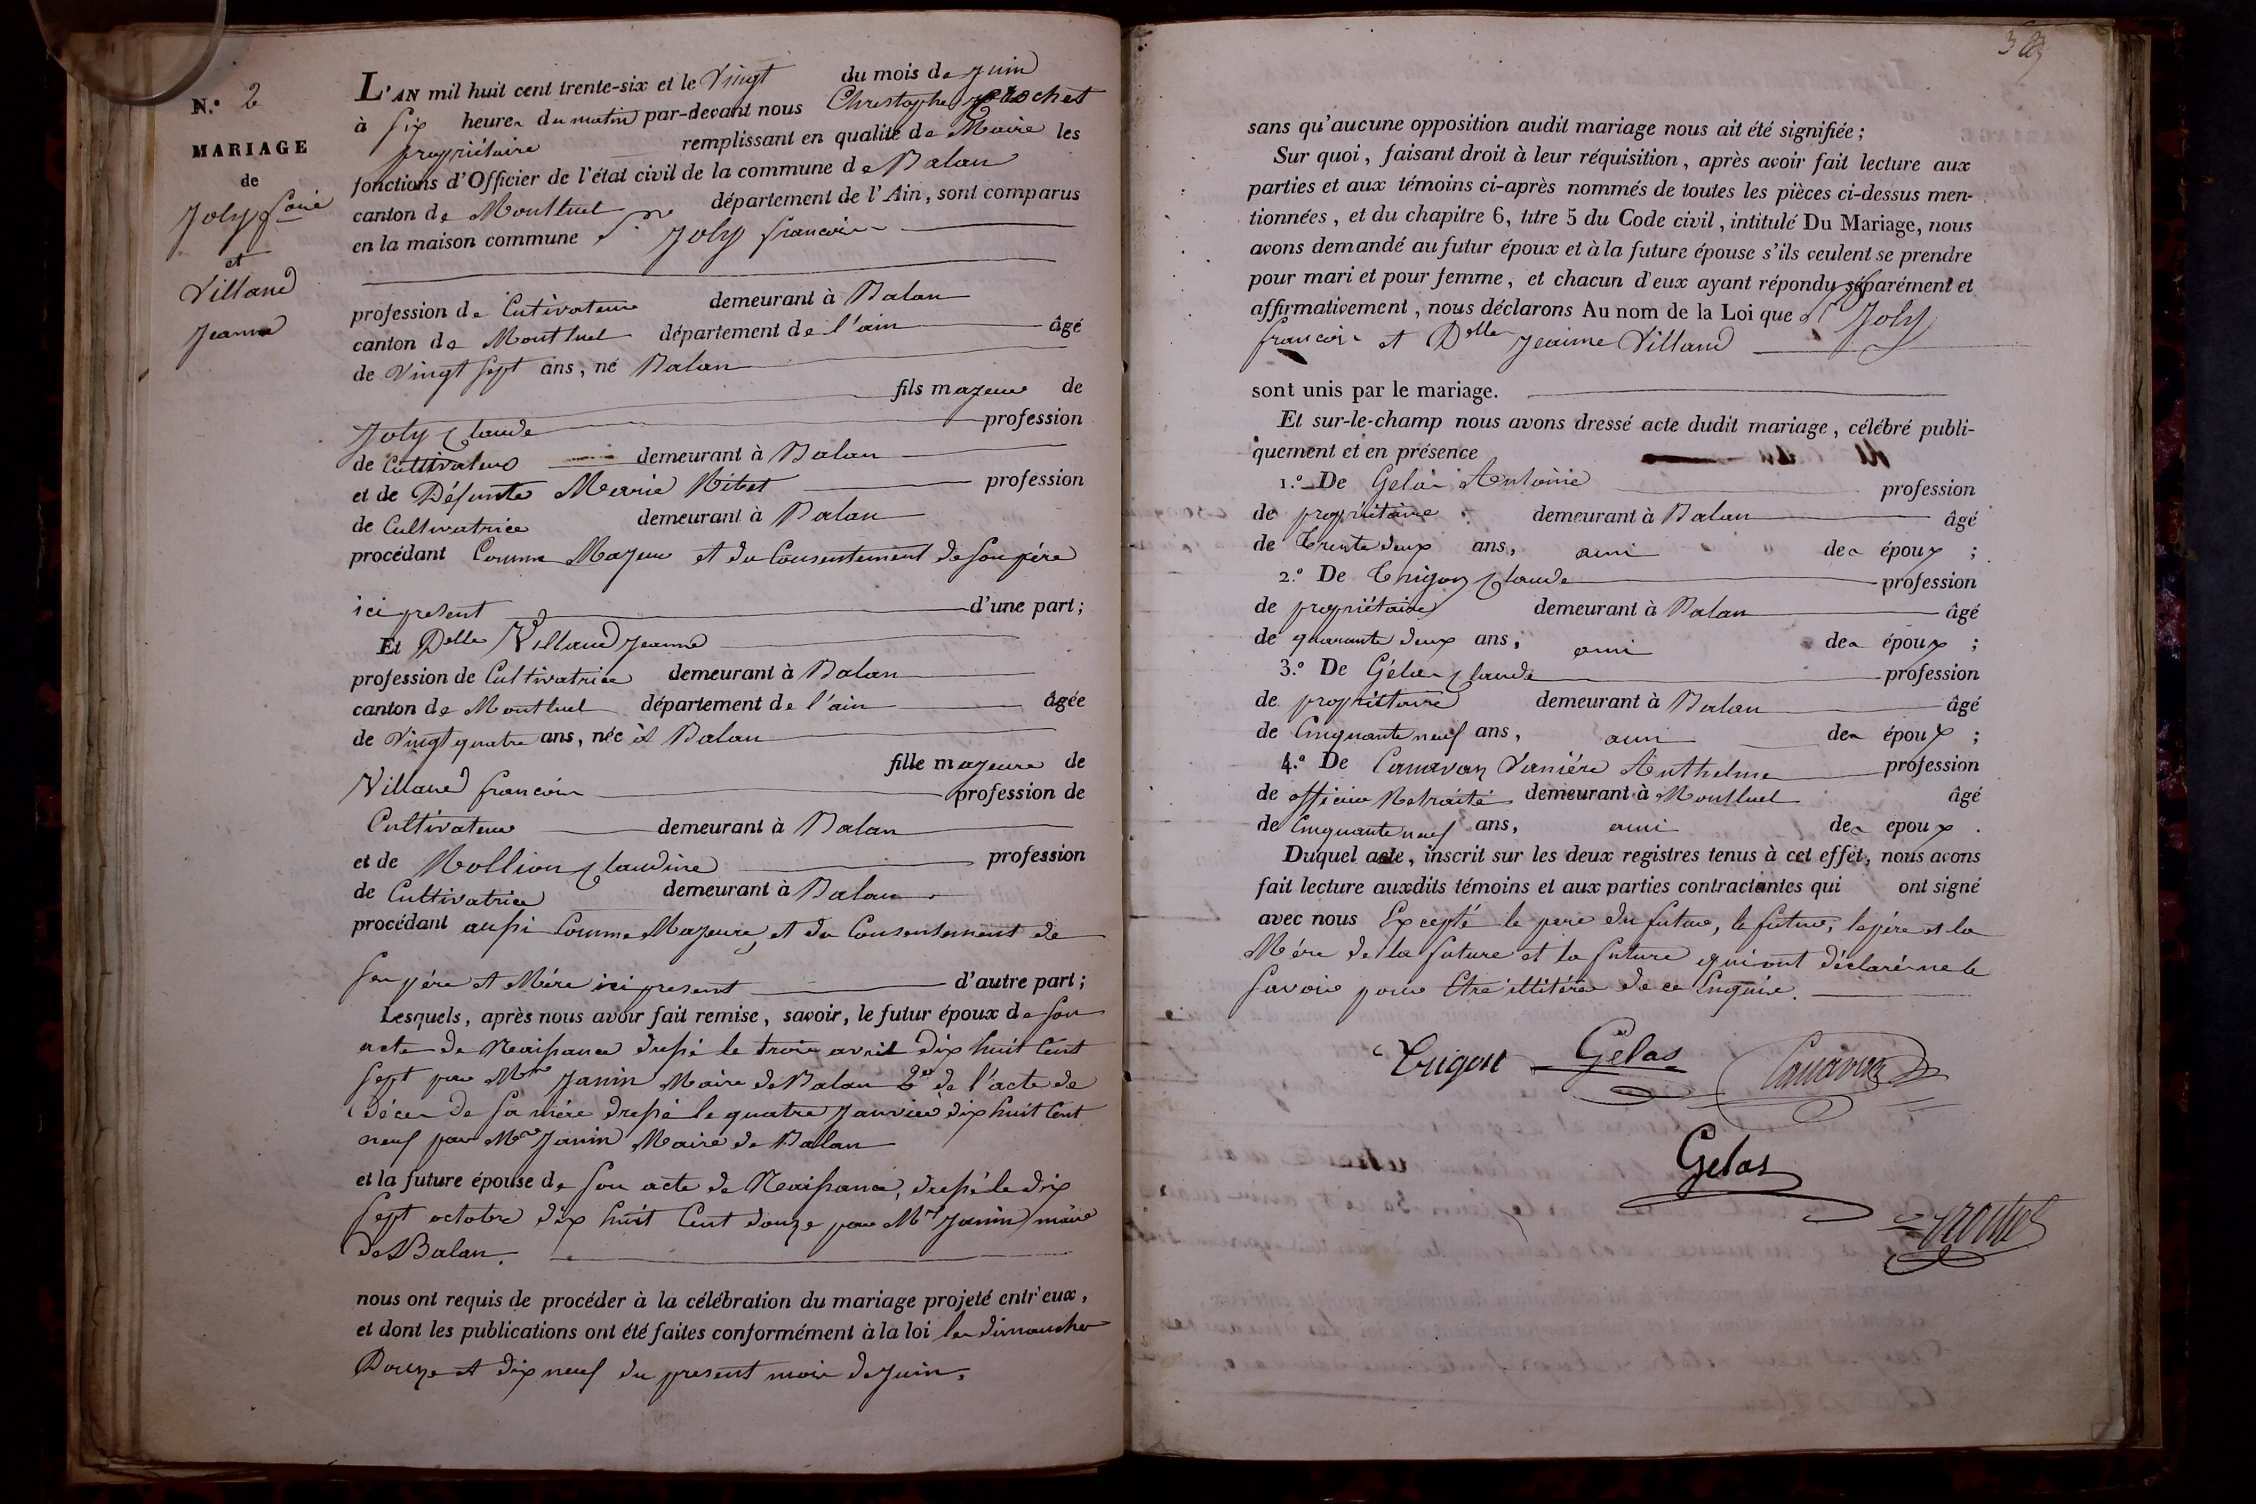 N.° 2
MARIAGE
de
Joly f.ois
et
Villand
Jeanne
L'AN mil huit cent trente-six et le Vingt du mois de Juin
à six heures du matin par-devant nous Christophe
propriétaire remplissant en qualité de Maire les
fonctions d'Officier de l'état civil de la commune de Balan
canton de Montluel département de l'Ain, sont comparus
en la maison commune Sr Joly francois
profession de Cutivateur demeurant à Balan
canton de Montluel département de l'ain âgé
de Vingt sept ans, né Balan
fils majeur de
Joly Claude profession
de Cultivateur demeurant à Balan
et de Défunte Marie Ribet profession
de Cultivatrice demeurant à Balan
procédant Comme Majeur et du Consentement de son père
ici present d'une part;
Et Delle Villand Jeanne
profession de Cultivatrice demeurant à Balan
canton de Montluel département de l'ain âgée
de Vingt quatre ans, née à Balan
fille majeure de
Villand francois profession de
Cultivateur demeurant à Balan
et de Rollion Claudine profession
de Cultivatrice demeurant à Balan
procédant aussi Comme Majeure, et du Consentement de
ses père et Mère ici present d'autre part;
Lesquels, après nous avoir fait remise, savoir, le futur époux de son
acte de Naissance dressé le trois avril dix huit Cent
sept par Mre Janin Maire de Balan 2° de l'acte de
décès de sa mère dressé le quatre Janvier dix huit Cent
neuf par Mre Janin Maire de Balan
et la future épouse de son acte de Naissance, dressé le dix
sept octobre dix huit Cent douze par Mre Janin maire
de Balan.
nous ont requis de procéder à la célébration du mariage projeté entr'eux,
et dont les publications ont été faites conformément à la loi les dimanches
Douze et dix neuf du present mois de Juin.
sans qu'aucune opposition audit mariage nous ait été signifiée;
Sur quoi, faisant droit à leur réquisition, après avoir fait lecture aux
parties et aux témoins ci-après nommés de toutes les pièces ci-dessus men-
tionnées, et du chapitre 6, titre 5 du Code civil, intitulé Du Mariage, nous
avons demandé au futur époux et à la future épouse s'ils veulent se prendre
pour mari et pour femme, et chacun d'eux ayant répondu séparément et
affirmativement, nous déclarons Au nom de la Loi que Sr Joly
francois et Delle Jeanne Villand
sont unis par le mariage.
Et sur-le-champ nous avons dressé acte dudit mariage, célébré publi-
quement et en présence
1.° De Gelas Antoine profession
de propriétaire demeurant à Balan âgé
de Trente deux ans, ami des époux;
2.° De Trigon Claude profession
de propriétaire demeurant à Balan âgé
de quarante deux ans, ami des époux;
3.° De Gélas Claude profession
de propriétaire demeurant à Balan âgé
de Cinquante neuf ans, ami des époux;
4.° De Canavan Anthelme profession
de officier Retraité demeurant à Montluel âgé
de Cinquante neuf ans, ami des epoux.
Duquel acte, inscrit sur les deux registres tenus à cet effet, nous avons
fait lecture auxdits témoins et aux parties contractantes qui ont signé
avec nous Excepté le pere du futur, le futur, le père et la
Mère de la future et la future qui ont déclaré ne le
savoir pour Etre illitérés de ce Enquis.
Trigon Gelas
Gelas